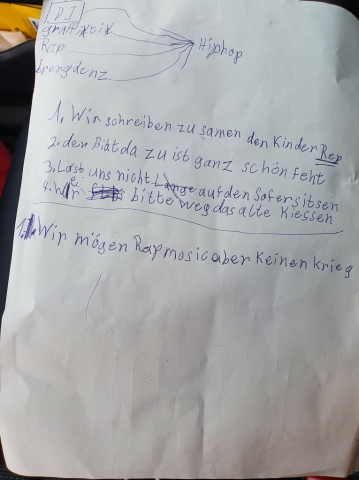 DJ
graffitik
Rap
brengdenz
Hiphop
1. Wir schreiben zu samen den Kinder Rep
2. den Bitt da zu ist ganz schön feht
3. Last uns nicht Länge auf den Sofersitsen
4. bitte weg das alte Kiessen
1. Wir mögen Rapmosic aber Keinen krieg